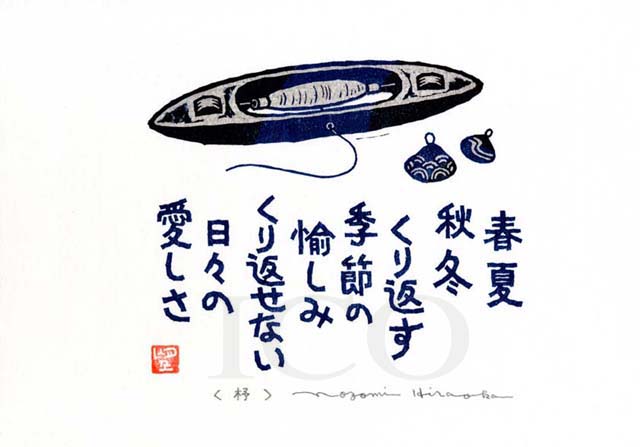 春夏
秋冬
くり返す
季節の
愉しみ
くり返せない
日々の
愛しさ
〈杼〉 Nozomi Hiraoka
ICO